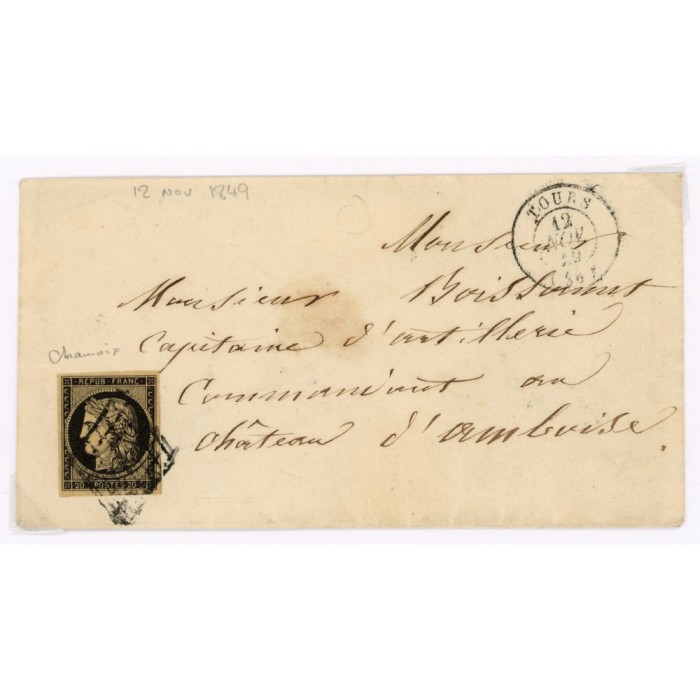 12 NOV 1849
TOURS
12
NOV
49
(36)
Monsieur
Monsieur Boissonnet
Capitaine d'artillerie
Commandant au
château d'amboise.
chamois
REPUB FRANC
20 POSTES 20